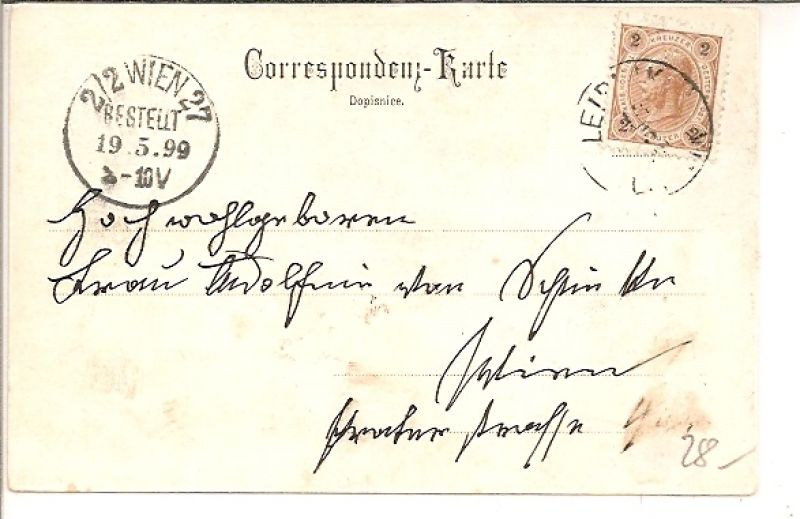 Correspondenz-Karte
Dopisnice.
2/2 WIEN 27
BESTELLT
19.5.99
-10V
2 KREUZER 2
Hochwohlgeboren
Frau Adolfine von
Wien
Praterstrasse
28-